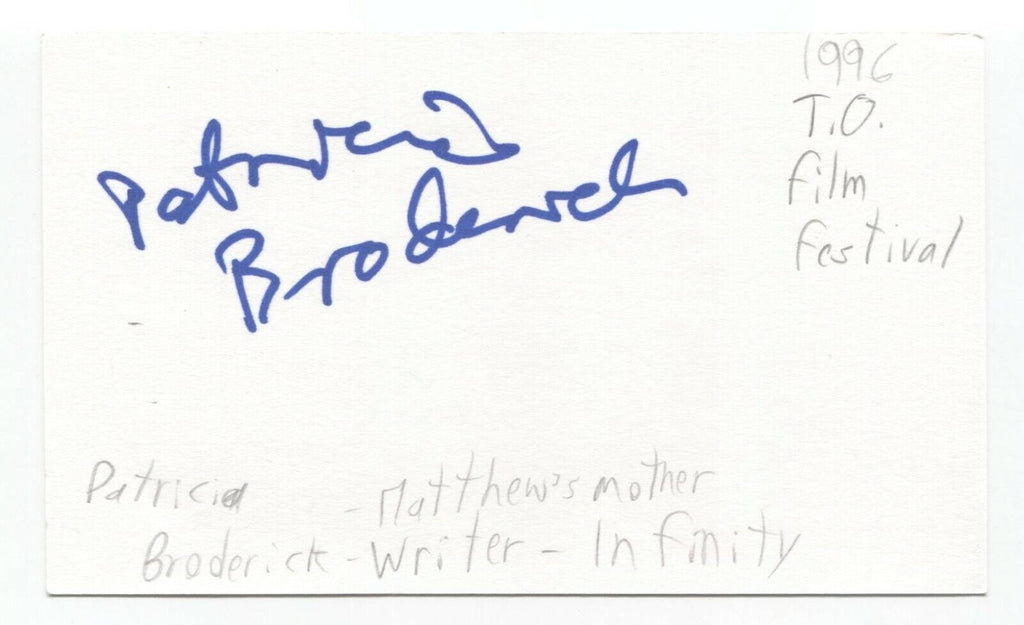 Patricia
Broderick
1996
T.O.
film
festival
Patricia - Matthew's mother
Broderick - Writer - Infinity